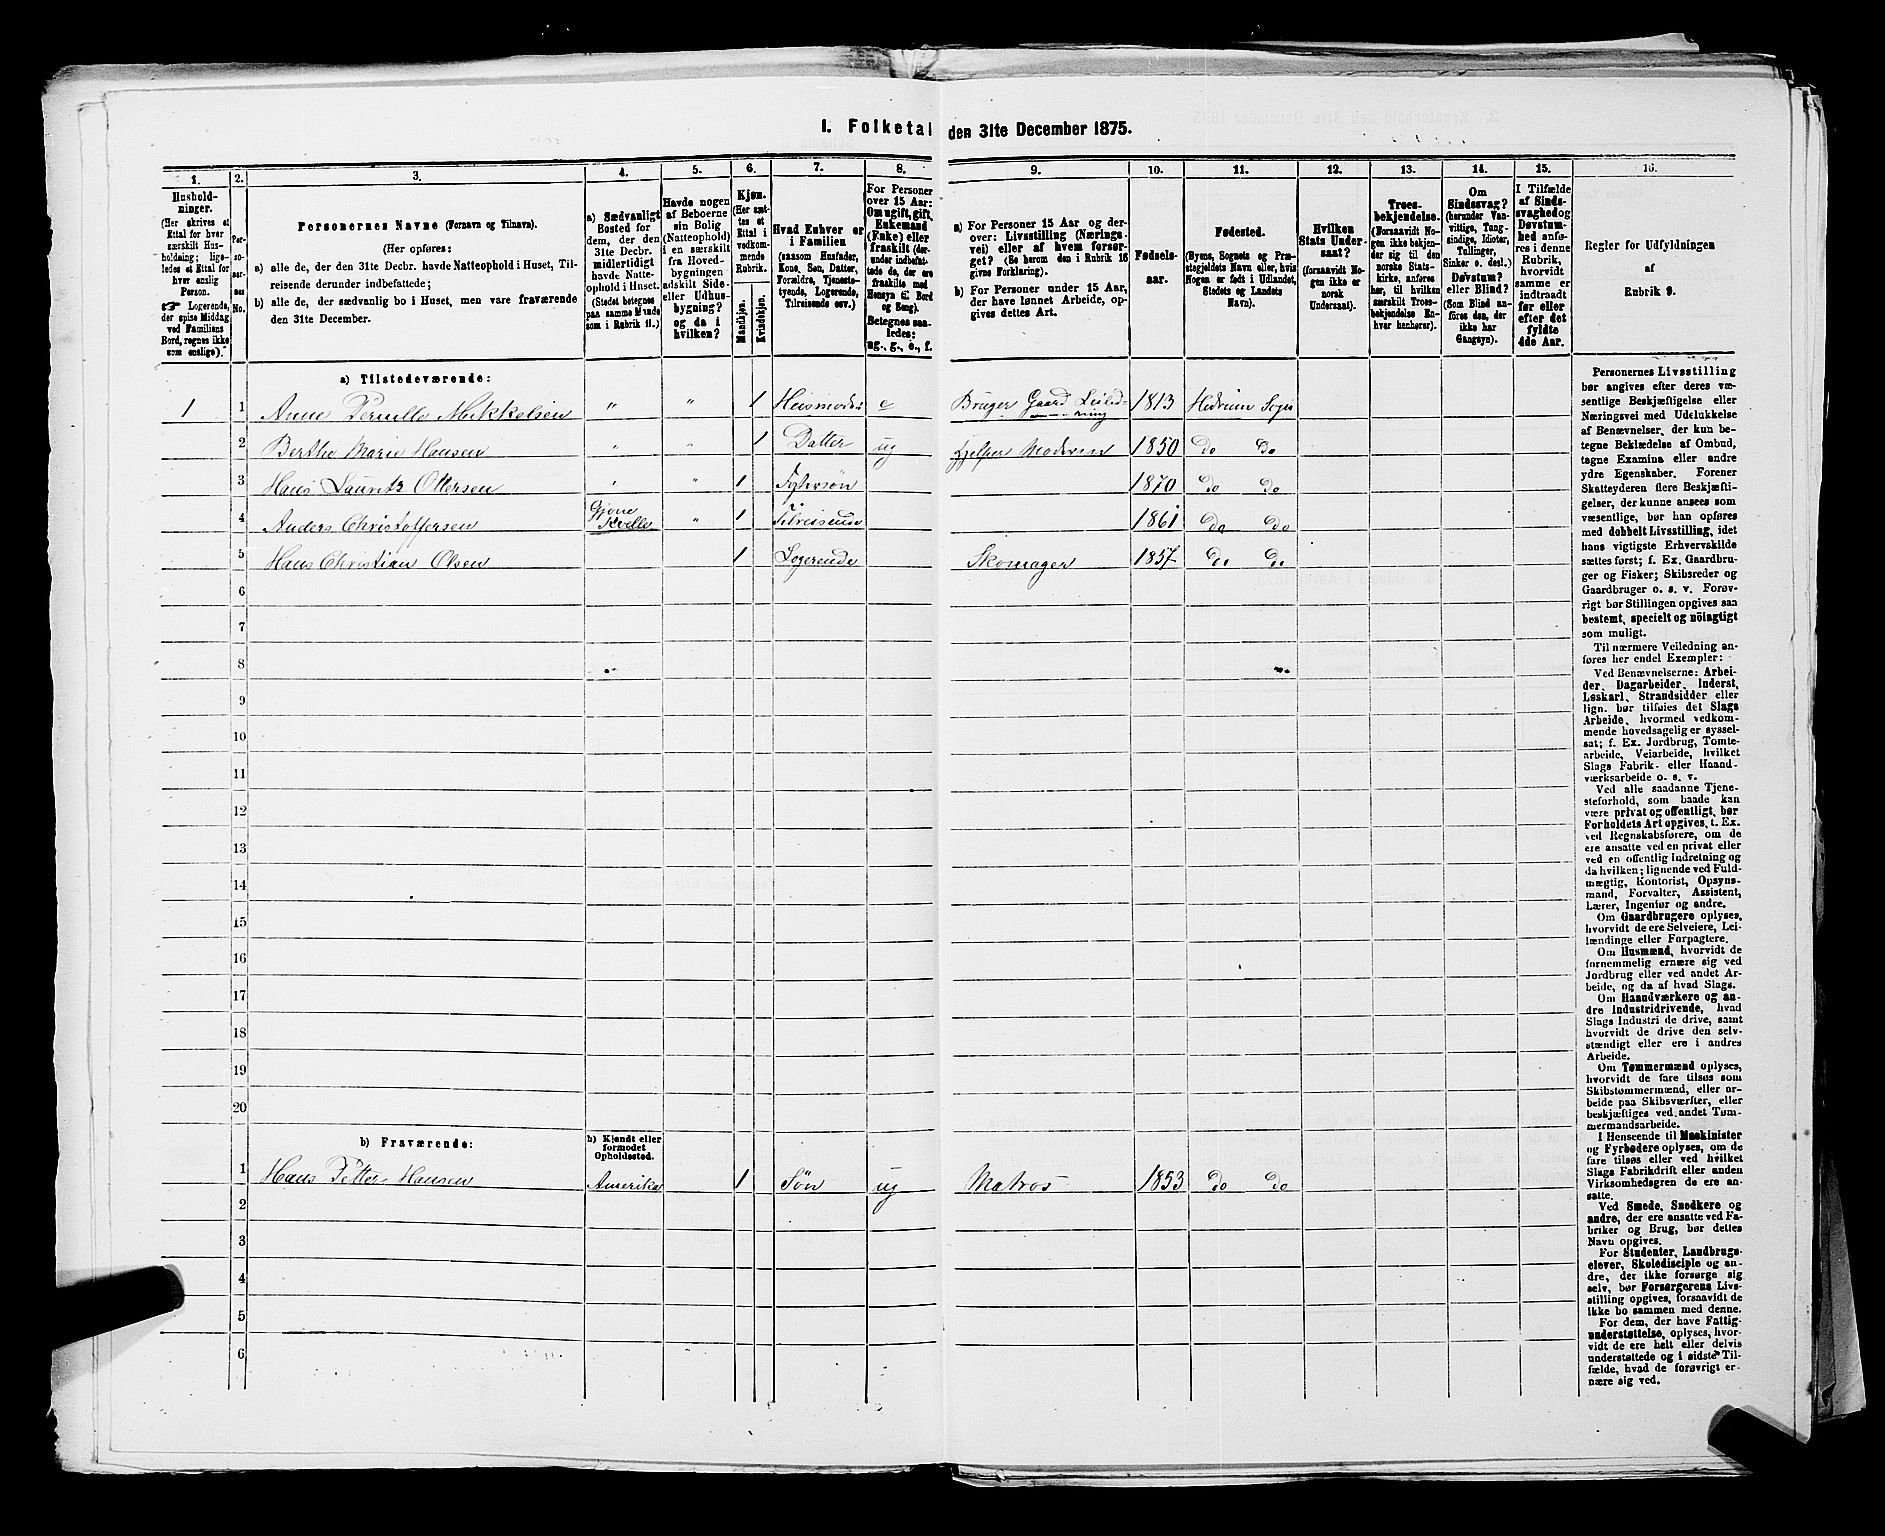 I. Folketal den 31te December 1875.
1.
Husholdninger.
(Her skrives et
Ettal for hver
særskilt Husholdning;
ligeledes et Ettal for
hver enslig
Person.
☞ Logerende,
der spise Middag
ved Familiens
Bord, regnes ikke
som enslige).
2.
Personernes No.
3.
Personernes Navne (Fornavn og Tilnavn).
(Her opføres:
a) alle de, der den 31te Decbr. havde Natteophold i Huset, Tilreisende
derunder indbefattede;
b) alle de, der sædvanlig bo i Huset, men vare fraværende
den 31te December.
4.
a) Sædvanligt
Bosted for
dem, der den
31te Decbr.
midlertidigt
havde Natteophold
i Huset.
(Stedet betegnes
paa samme Maade
som i Rubrik 11.)
5.
Havde nogen
af Beboerne
sin Bolig
(Natteophold)
i en særskilt
fra Hovedbygningen
adskilt Side-
eller Udhusbygning?
og da i
hvilken?
6.
Kjøn.
(Her sættes
et
Ettal i
vedkommende
Rubrik.
Mandkjøn.
Kvindekjøn.
7.
Hvad Enhver er
i Familien
(saasom Husfader,
Kone, Søn, Datter,
Forældre, Tjenestetyende,
Logerende,
Tilreisende osv.)
8.
For Personer
over 15 Aar:
Om ugift, gift,
Enkemand
(Enke) eller
fraskilt (derunder
indbefattede
de, der ere
fraskilte med
Hensyn til Bord
og Seng).
Betegnes saaledes:
ug., g., e., f.
9.
a) For Personer 15 Aar og derover:
Livsstilling (Næringsvei)
eller af hvem forsørget?
(Se herom den i Rubrik 16
givne Forklaring).
b) For Personer under 15 Aar,
der have lønnet Arbeide, opgives
dettes Art.
10.
Fødselsaar.
11.
Fødested.
(Byens, Sognets og Præstegjeldets
Navn eller, hvis
Nogen er født i Udlandet,
Stedets og Landets
Navn).
12.
Hvilken
Stats Undersaat?
(forsaavidt Nogen
ikke er
norsk
Undersaat).
13.
Troesbekjendelse.
(Forsaavidt Nogen
ikke bekjender
sig til den
norske Statskirke,
anføres
her, til hvilken
særskilt Troesbekjendelse
Enhver
henhører).
14.
Om
Sindssvag?
(herunder Vanvittige,
Tungsindige,
Idioter,
Tullinger,
Sinker o. desl.)
Døvstum?
eller Blind?
(Som Blind anføres
den, der
ikke har
Gangsyn).
15.
I Tilfælde
af Sindssvaghed
og
Døvstumhed
anføres
i denne
Rubrik,
hvorvidt
samme er
indtraadt
før eller
efter det
fyldte
4de Aar.
16.
Regler for Udfyldningen
af
Rubrik 9.
a) Tilstedeværende:
1 1 Anne Pernille Mikkelsen " " 1 Husmoder e Bruger Gaard Leilending 1813 Hedrum Sogn
2 Berthe Marie Hansen " 1 Datter ug Hjelper Moderen 1850 Do Do
3 Hans Lauritz Ottersen " " 1 1870 Do Do
4 Anders Christoffersen " 1 Tilreisende 1861 Do Do
5 Hans Christian Olsen 1 Logerende Skomager 1857 Do Do
6
7
8
9
10
11
12
13
14
15
16
17
18
19
20
b) Fraværende:
b) Kjendt eller
formodet
Opholdssted.
1 Hans Petter Hansen Amerika 1 Søn ug Matros 1853 Do Do
2
3
4
5
6
Personernes Livsstilling
bør angives efter deres væsentlige
Beskjæftigelse eller
Næringsvei med Udelukkelse
af Benævnelser, der kun betegne
Beklædelse af Ombud,
tagne Examina eller andre
ydre Egenskaber. Forener
Skatteyderen flere Beskjæftigelser,
der kunne ansees som
væsentlige, bør han opføres
med dobbelt Livsstilling, idet
hans vigtigste Erhvervskilde
sættes først; f. Ex. Gaardbruger
og Fisker; Skibsreder og
Gaardbruger o. s. v. Forøvrigt
bør Stillingen opgives saa
bestemt, specielt og nøiagtigt
som muligt.
Til nærmere Veiledning anføres
her endel Exempler:
Ved Benævnelserne: Arbeider,
Dagarbeider, Inderst,
Løskarl, Strandsidder eller
lign. bør tilføies det Slags
Arbeide, hvormed vedkommende
hovedsagelig er sysselsat;
f. Ex. Jordbrug, Tomtearbeide,
Veiarbeide, hvilket
Slags Fabrik- eller Haandværksarbeide
o. s. v.
Ved alle saadanne Tjenesteforhold,
som baade kan
være privat og offentligt, bør
Forholdets Art opgives, f. Ex.
ved Regnskabsførere, om de
ere ansatte ved en privat eller
ved en offentlig Indretning og
da hvilken; lignende ved Fuldmægtig,
Kontorist, Opsynsmand,
Forvalter, Assistent,
Lærer, Ingeniør og andre.
Om Gaardbrugere oplyses,
hvorvidt de ere Selveiere, Leilændinge
eller Forpagtere.
Om Husmænd, hvorvidt de
fornemmelig ernære sig ved
Jordbrug eller ved andet Arbeide,
og da af hvad Slags.
Om Haandværkere og andre
Industridrivende, hvad
Slags Industri de drive, samt
hvorvidt de drive den selvstændigt
eller ere i andres
Arbeide.
Om Tømmermænd oplyses,
hvorvidt de fare tilsøs som
Skibstømmermænd, eller arbeide
paa Skibsværfter, eller
beskjæftiges ved andet Tømmermandsarbeide.
I Henseende til Maskinister
og Fyrbødere oplyses, om de
fare tilsøs eller ved hvilket
Slags Fabrikdrift eller anden
Virksomhedsgren de ere ansatte.
Ved Smede, Snedkere og
andre, der ere ansatte ved Fabriker
og Brug, bør dettes
Navn opgives.
For Studenter, Landbrugselever,
Skoledisciple og andre,
der ikke forsørge sig
selv, bør Forsørgerens Livsstilling
opgives, forsaavidt de
ikke bo sammen med denne.
For dem, der have Fattigunderstøttelse,
oplyses, hvorvidt
de ere helt eller delvis
understøttede og i sidste Tilfælde,
hvad de forøvrigt ernære
sig ved.